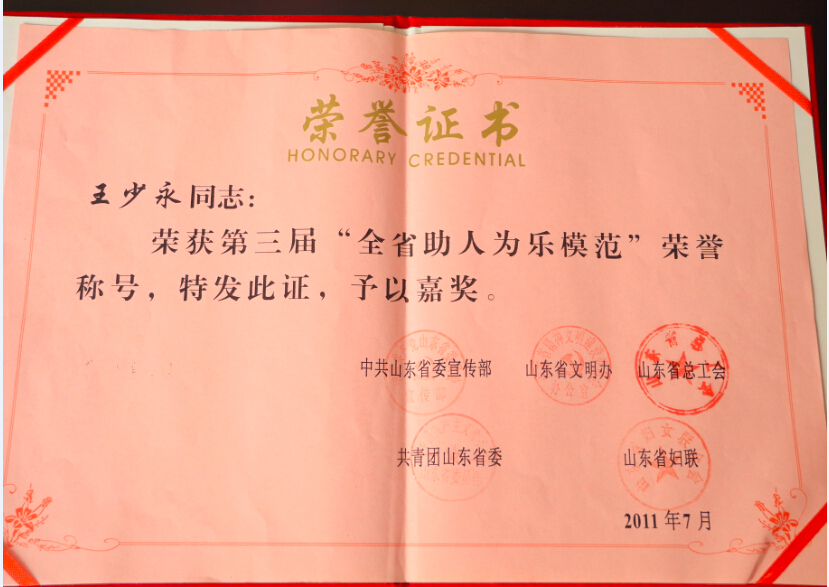 荣誉证书
HONORARY CREDENTIAL
王少永同志：
荣获第三届“全省助人为乐模范”荣誉
称号，特发此证，予以嘉奖。
中共山东省委宣传部 山东省文明办 山东省总工会
共青团山东省委 山东省妇联
2011年7月